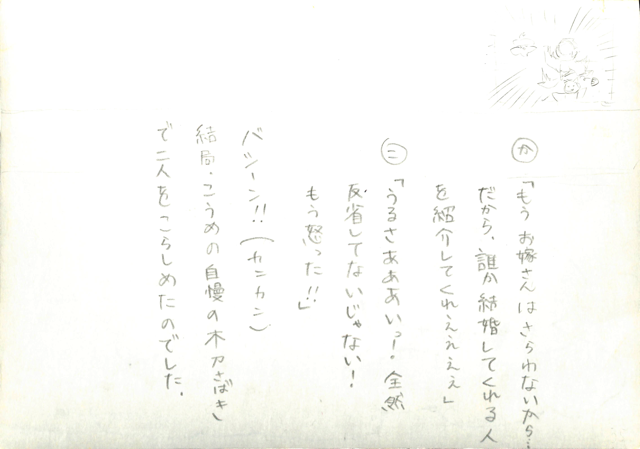 か 「もう お嫁さん はさらわないから…
だから、誰か結婚してくれる人
を紹介してくれぇぇぇぇ」
こ 「うるさあああいっ!全然
反省してないじゃない!
もう怒った!!」
バシーン!!(カンカン)
結局、こうめの自慢の木刀さばき
で二人をこらしめたのでした.